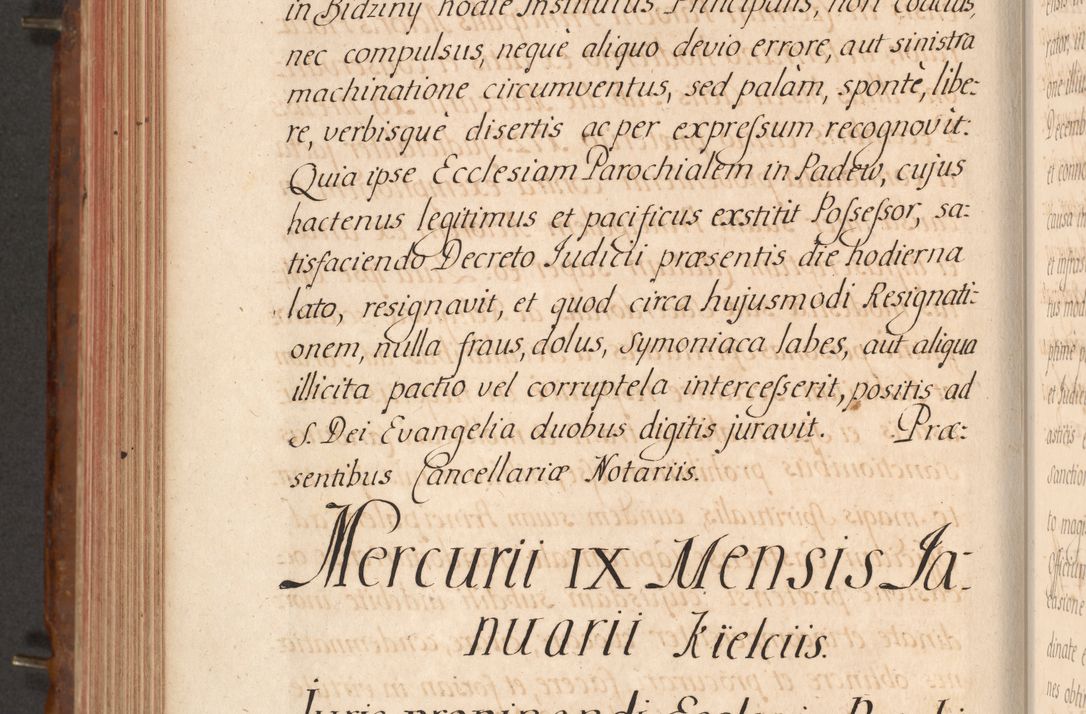 in Bidziny hodie Institutus Principalis, non coactus,
nec compulsus, nequè aliquo devio errore, aut sinistra
machinatione circumventus, sed palàm, spontè, libe:
re, verbisquè disertis ac per expreſsum recognovit:
Quia ipse Ecclesiam Parochialem in Padew, cujus
hactenus legitimus et pacificus exstitit Poſseſsor, sa:
tisfaciendo Decreto Iudicii præsentis die hodierna
lato, resignavit, et quod circa hujusmodi Resignati:
onem, nulla fraus, dolus, Symoniaca labes, aut aliqua
illicita pactio vel corruptela interceſserit, positis ad
S. Dei Evangelia duobus digitis juravit. Præ:
sentibus Cancellariæ Notariis.
Mercurii IX Mensis Ja:
nuarii Kielciis.